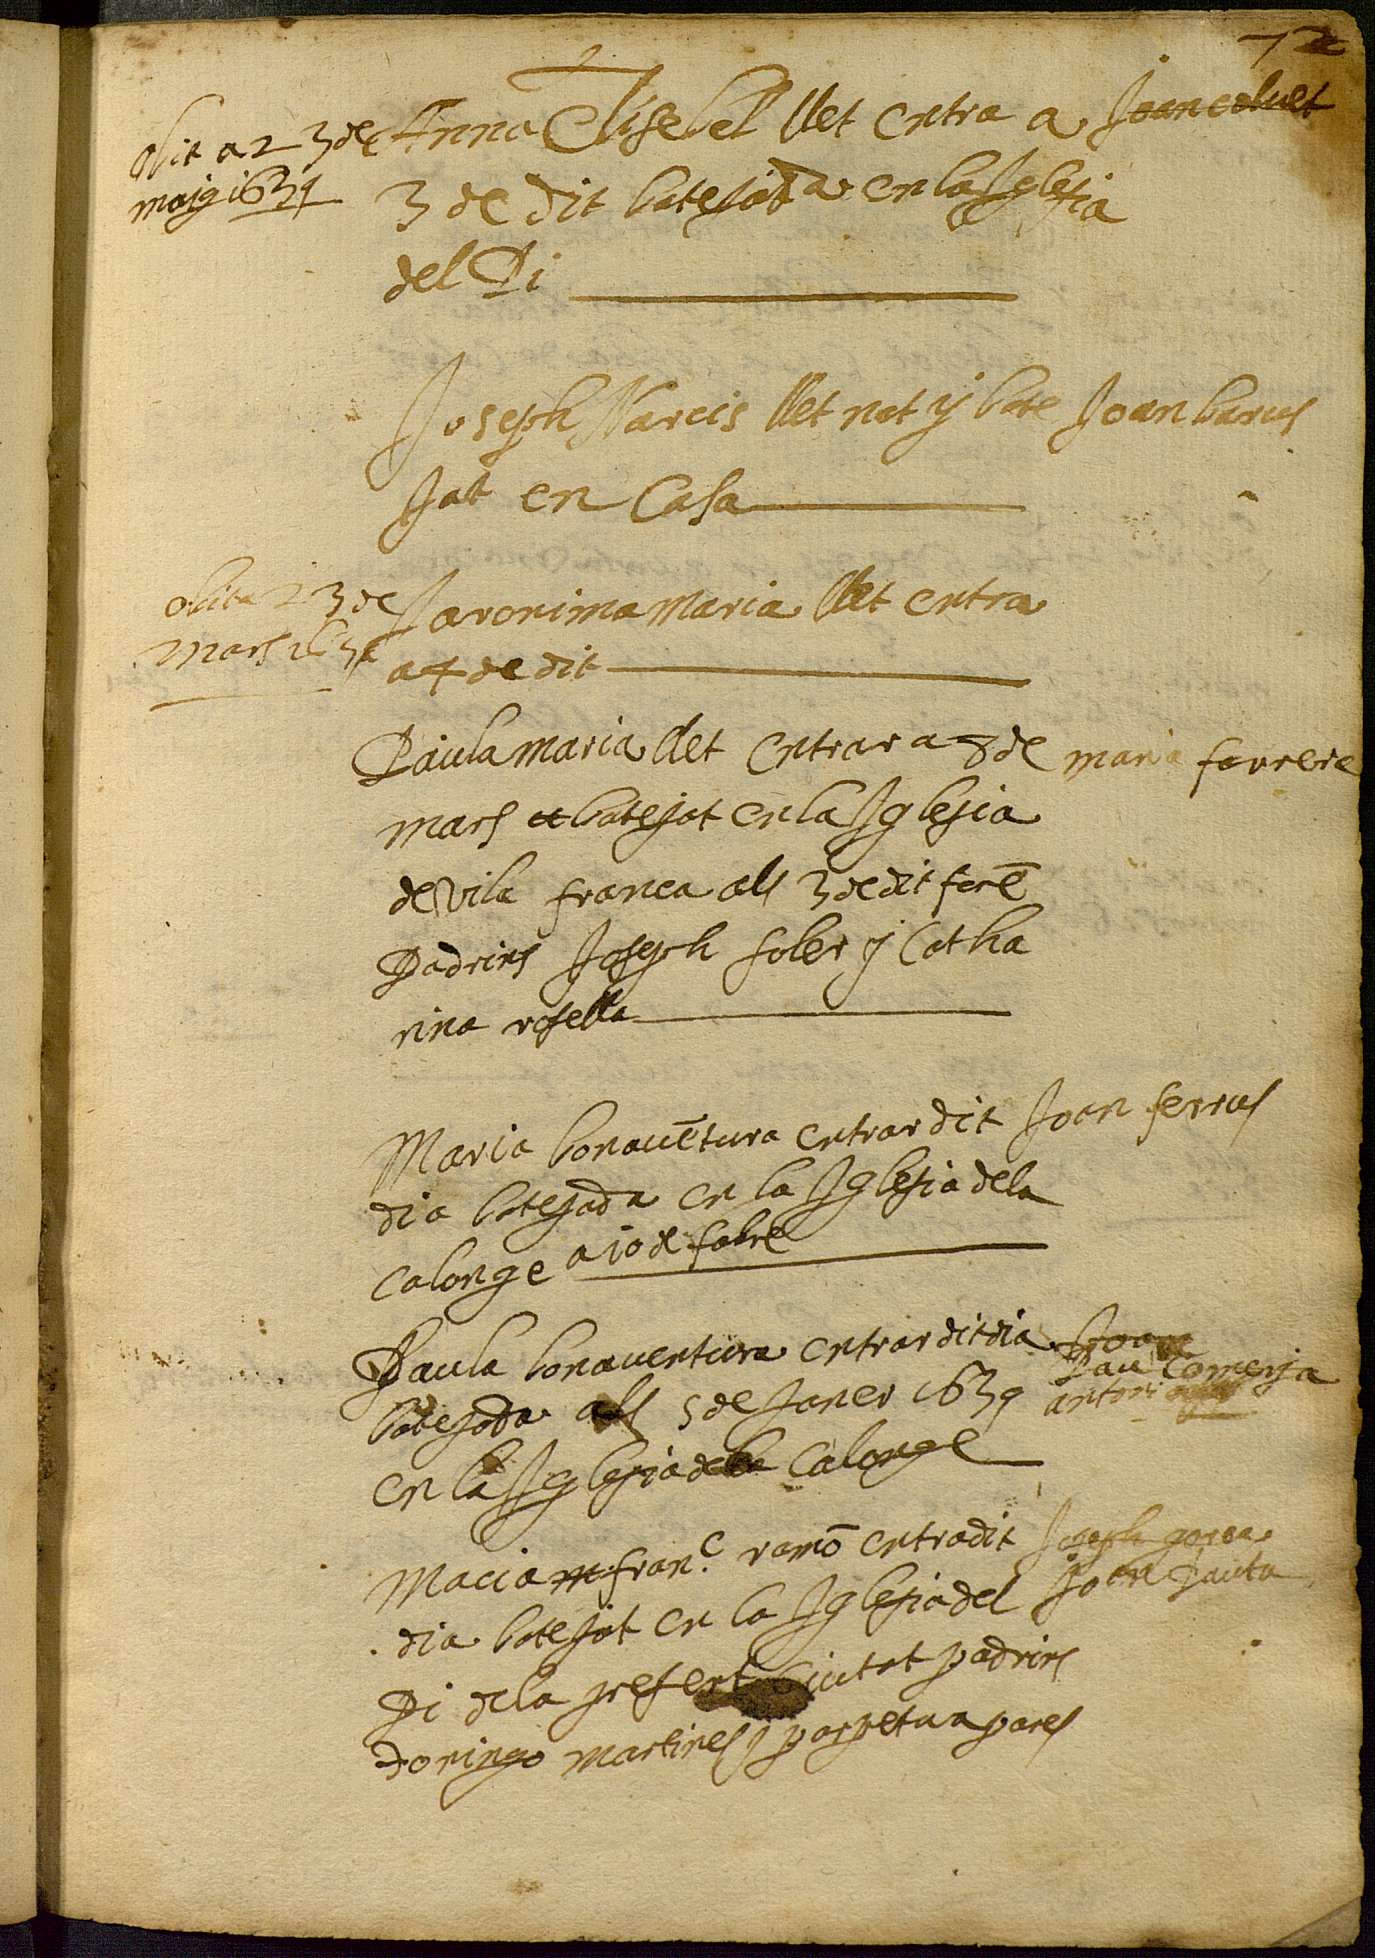 72
obit a 23 de
maig 1639
Anna Elisebet llet entra a
3 de dit batejada en la Iglesia
del Pi
Joan coluet
Joseph Narcis llet nat y bate
jat en Casa
Joan barus
obit a 23 de
Mars 1639
Jaronima Maria llet entra
a 4 de dit
Paula maria llet entrar a 8 de
mars batejat en la Iglesia
de Vila franca als 3 de dit forē
Padrins Joseph soler y Catha
rina rosella
maria ferrera
Maria bonauētura entrar dit
dia batejada en la Iglesia de la
Calonge a 10 de fabre
Joan ferrus
Paula bonauentura entrar dit dia
batejada als 5 de Janer 1639
en la Iglesia de la Calonge
Joan
Pau Comenja
antoni
Macia fran.c ramō entra dit
dia batejat en la Iglesia del
Pi de la present Ciutat padrins
domingo martines y parpetua pares
Joseph
Joan Pauta